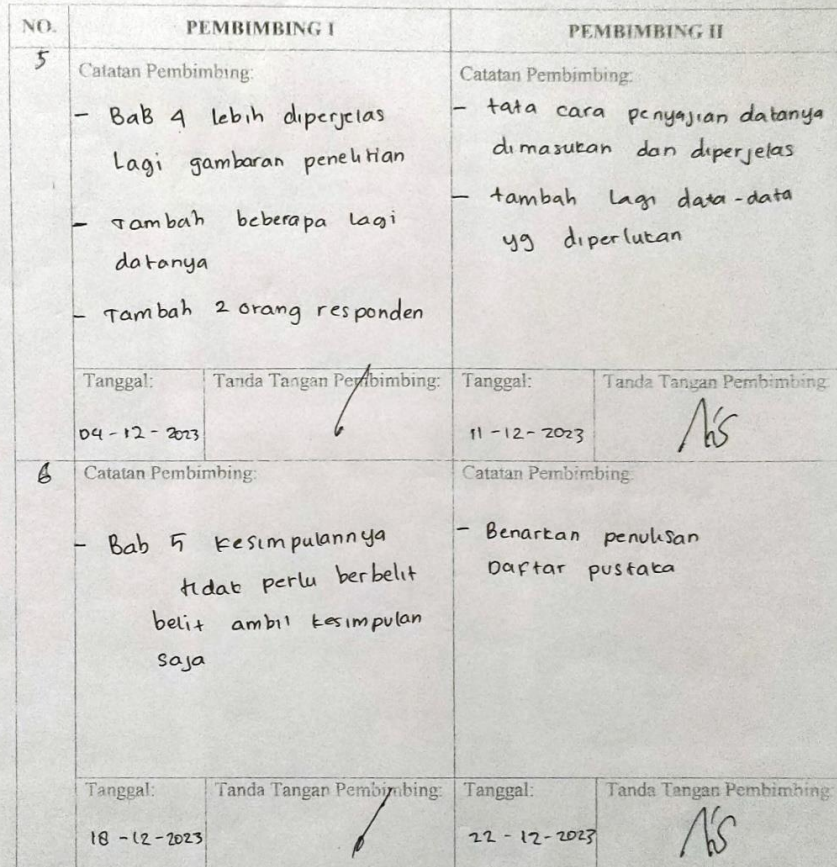 NO. PEMBIMBING I PEMBIMBING II
5
Catatan Pembimbing:
- BaB 4 lebih diperjelas
Lagi gambaran penelitian
- Tambah beberapa lagi
datanya
- Tambah 2 orang responden
Catatan Pembimbing:
- tata cara penyajian datanya
dimasukan dan diperjelas
- tambah Lagi data-data
yg diperlukan
Tanggal: Tanda Tangan Pembimbing: Tanggal: Tanda Tangan Pembimbing:
04-12-2023 11-12-2023
6
Catatan Pembimbing:
- Bab 5 kesimpulannya
tidak perlu berbelit
belit ambil kesimpulan
saja
Catatan Pembimbing:
- Benarkan penulisan
Daftar pustaka
Tanggal: Tanda Tangan Pembimbing: Tanggal: Tanda Tangan Pembimbing:
18-12-2023 22-12-2023